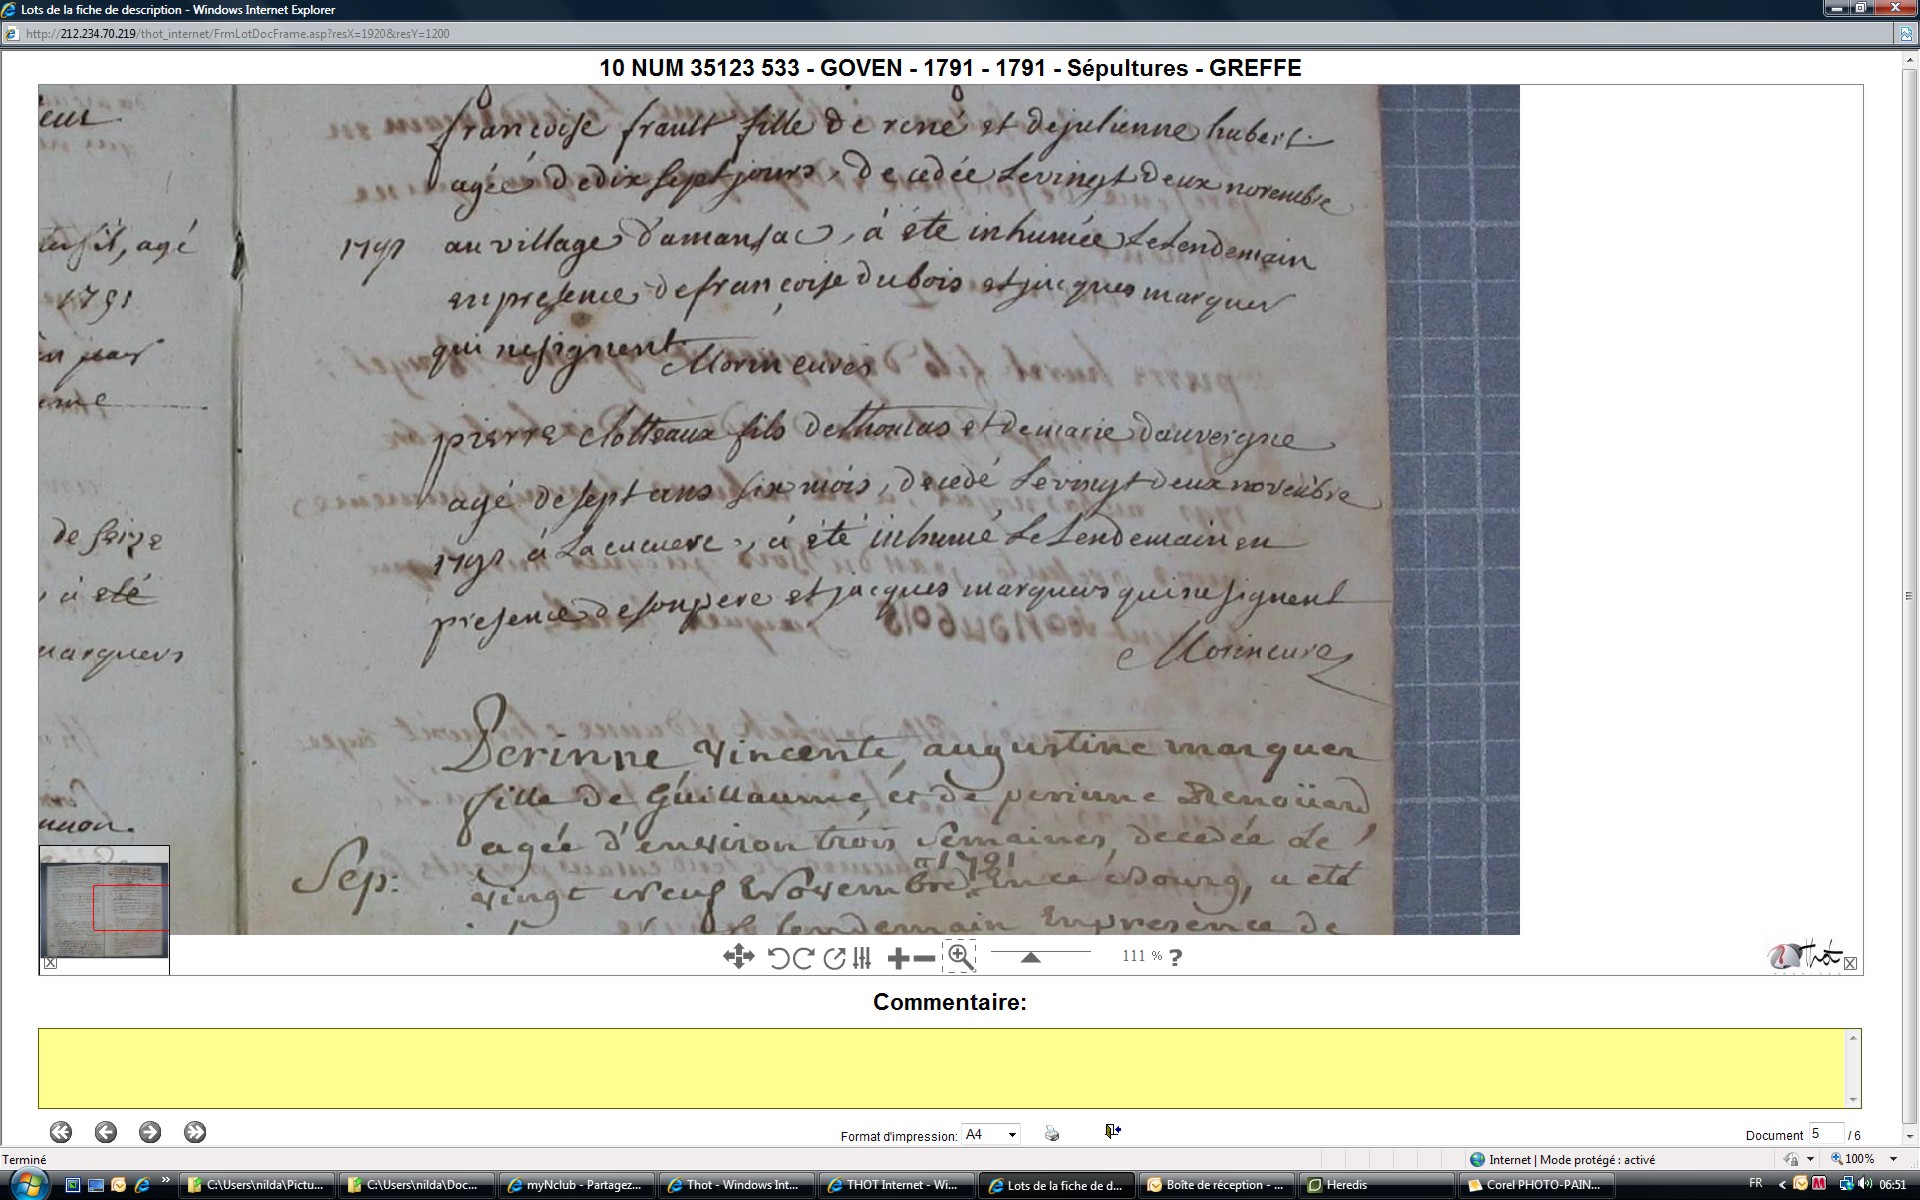 Lots de la fiche de description - Windows Internet Explorer
http://212.234.70.219/thot_internet/FrmLotDocFrame.asp?resX=1920&resY=1200
10 NUM 35123 533 - GOVEN - 1791 - 1791 - Sépultures - GREFFE
françoise frault fille de rené et de julienne hubert
agée de dix sept jours, decedée le vingt deux novembre
1791 au village d'amansac, a été inhumée le lendemain
en presence de françoise dubois et jacques marquer
qui ne signent Morin curé
pierre clotteaux fils de thomas et de marie dauvergne
agé de sept ans six mois, decedé le vingt deux novembre
1791 à la cucuere, a été inhumé le lendemain en
presence de son pere et jacques marquers qui ne signent
Morin curé
Perinne Vincente, augustine marquer
fille de Guillaume, et de perinne Renoüard
agée d'environ trois semaines, decedée le
Sep: vingt neuf Novembre 1791 en ce bourg, a eté
le lendemain en presence de
agé
1791
de seize
à été
marquers
111 %
Thot
Commentaire:
Format d'impression: A4
Document 5 / 6
Terminé
Internet | Mode protégé : activé
100%
C:\Users\nilda\Pictu...
C:\Users\nilda\Doc...
myNclub - Partagez...
Thot - Windows Int...
THOT Internet - Wi...
Lots de la fiche de d...
Boîte de réception - ...
Heredis
Corel PHOTO-PAIN...
FR
06:51